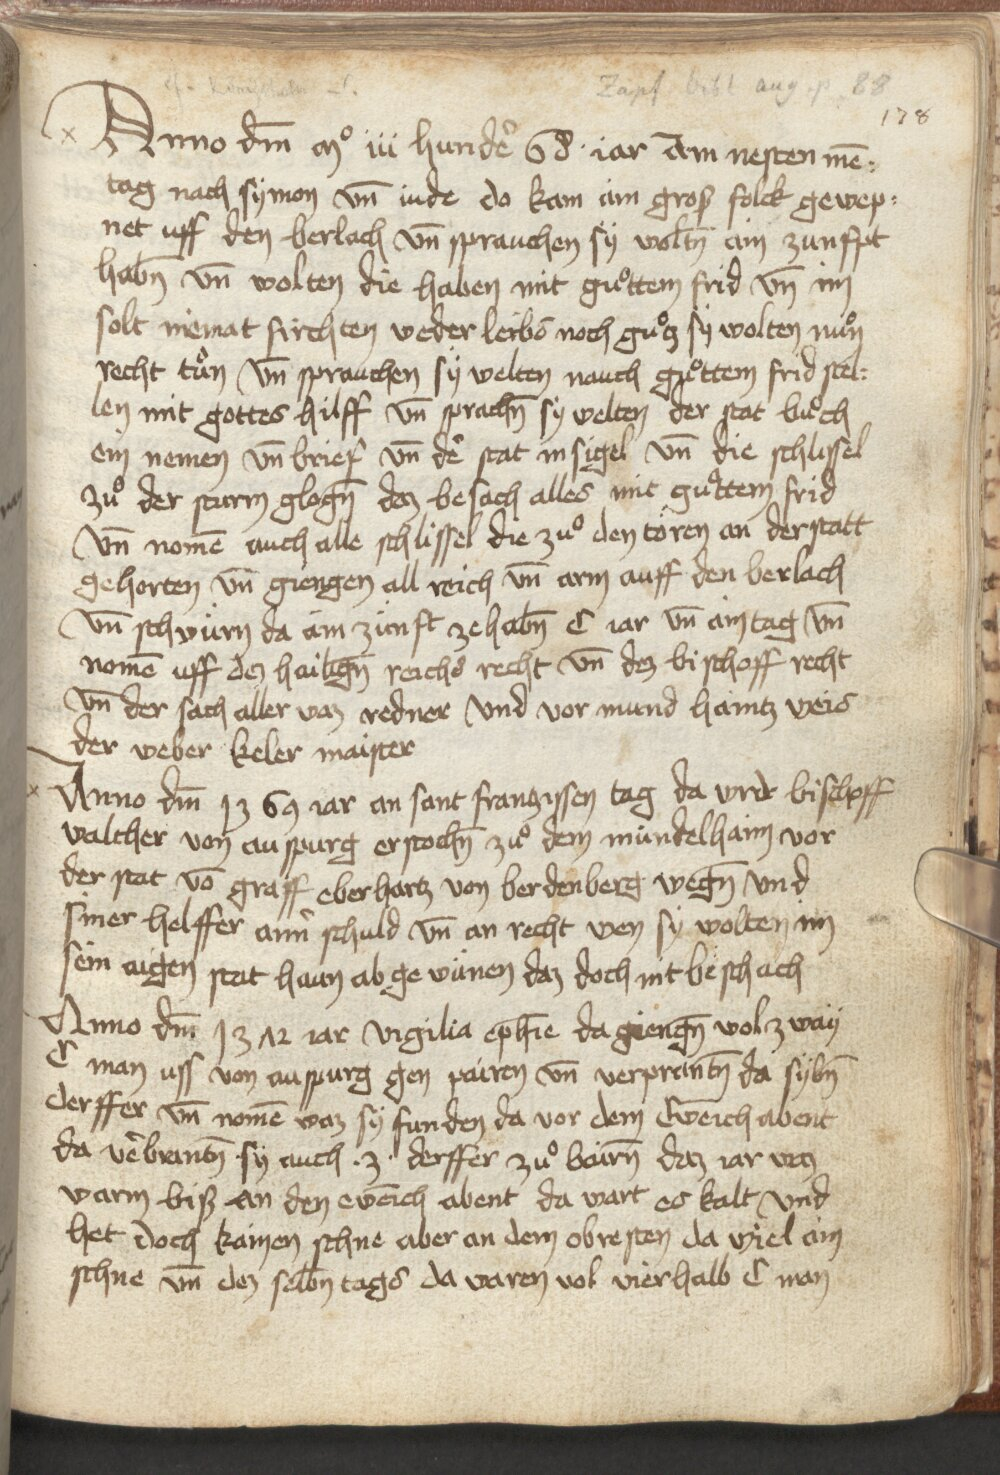 Zapf bibl aug. p. 88
178
Anno dm̄ mͦ iii hundē 68 iar Am nesten mē:
tag nach symon vn̄ iude do kam ain gros folck gewep:
net uff den berlach vn̄ sprauchen sy woltn̄ ain zunfft
habn̄ vn̄ wolten die haben mit guͦttem frid vn̄ im
solt niemat firchten weder leibs noch guͦtz sy wolten nuͦn
recht tuͦn vn̄ sprauchen sy welten nauch guͦttem frid stel:
len mit gottes hilff vn̄ sprachn̄ sy welten der stat buͦch
ein nemen vn̄ brief vn̄ dē stat in sigel vn̄ die schlussel
zuͦ der sturm glogn̄ dez besach alles mit guͦttem frid
vn̄ nomē auch alle schlissel die zuͦ den toren an der statt
gehorten vn̄ giengen all reich vn̄ arm auff den berlach
vn̄ schwurn da ain zunft ze habn̄ C iar vn̄ ain tag vn̄
nomē uff dez hailign̄ reichs recht vn̄ dez bischoff recht
vn̄ der sach aller waz redner und vor mund haintz weis
der weber keler maister
Anno dm̄ 1369 iar an sant franzissen tag da wrd bischoff
walcher von auspurg erstochn̄ zuͦ dem mundelhaim vor
der stat vō graff eberhartz von berdenberg wegn̄ und
siner helffer ann̄ schuld vn̄ an recht wen sy wolten im
sein aigen stat haun ab gewunen daz doch nit beschach
Anno dm̄ 1372 iar vigilia eph̄ie da giengn̄ wol zway
C man uss von auspurg gen pairen vn̄ verprantn̄ da sybn̄
derffer vn̄ nomē waz sy funden da vor dem ewēich abent
da vēbrantn̄ sy auch .3. derffer zuͦ bairn̄ daz iar waz
warm bis an den ewēich abent da wart es kalt und
het doch kainen schne aber an dem obresten da viel ain
schne vn̄ dez selbn̄ tags da waren wol vierhalb C man